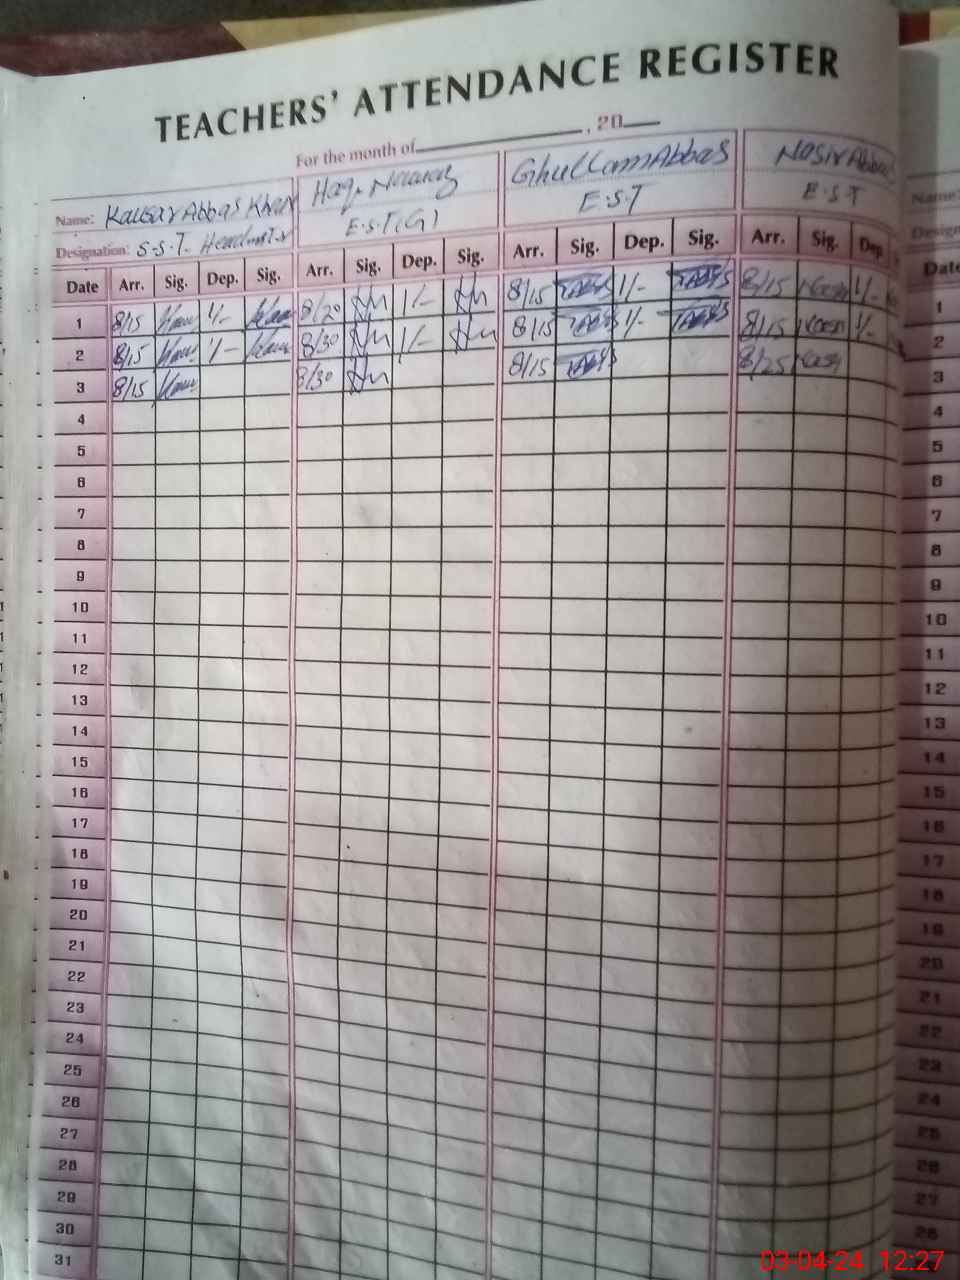 TEACHERS' ATTENDANCE REGISTER
For the month of , 20
Name: Kausar Abbas Khan Haq Nawaz Ghullam Abbas Nasir Abbas
Designation: S.S.T. Headmstr E.S.T(G) E.S.T E.S.T
Date Arr. Sig. Dep. Sig. Arr. Sig. Dep. Sig. Arr. Sig. Dep. Sig. Arr. Sig. Dep
1 8/15 1/- 8/20 1/- 8/15 1/- 8/15 1/-
2 8/15 1/- 8/30 1/- 8/15 1/- 8/15 1/-
3 8/15 8/30 8/15 8/25
4
5
6
7
8
9
10
11
12
13
14
15
16
17
18
19
20
21
22
23
24
25
26
27
28
29
30
31
Name:
Date
1
2
3
4
5
6
7
8
9
10
11
12
13
14
15
16
17
18
19
20
21
22
23
24
25
26
27
28
03-04-24 12:27